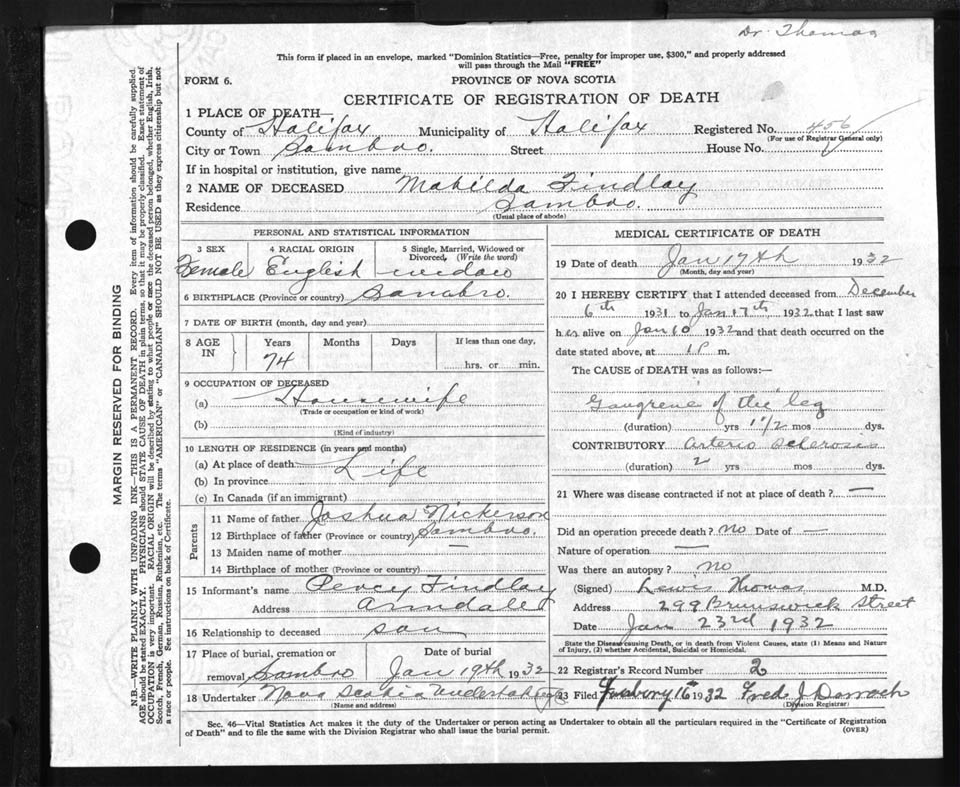 Dr. Thomas
This form if placed in an envelope, marked "Dominion Statistics—Free, penalty for improper use, $300," and properly addressed
will pass through the Mail "FREE"
FORM 6.
PROVINCE OF NOVA SCOTIA
CERTIFICATE OF REGISTRATION OF DEATH
1 PLACE OF DEATH—
County of Halifax Municipality of Halifax Registered No. 456
(For use of Registrar General only)
City or Town Sambro. Street House No.
If in hospital or institution, give name
2 NAME OF DECEASED Matilda Findlay
Residence Sambro.
(Usual place of abode)
PERSONAL AND STATISTICAL INFORMATION
3 SEX 4 RACIAL ORIGIN 5 Single, Married, Widowed or
Divorced, (Write the word)
Female English widow
6 BIRTHPLACE (Province or country) Sambro.
7 DATE OF BIRTH (month, day and year)
8 AGE IN Years Months Days If less than one day,
74 hrs. or min.
9 OCCUPATION OF DECEASED
(a) Housewife
(Trade or occupation or kind of work)
(b)
(Kind of industry)
10 LENGTH OF RESIDENCE (in years and months)
(a) At place of death Life
(b) In province
(c) In Canada (if an immigrant)
Parents
11 Name of father Joshua Nickerson
12 Birthplace of father (Province or country) Sambro.
13 Maiden name of mother —
14 Birthplace of mother (Province or country)
15 Informant's name Percy Findlay
Address Armdale
16 Relationship to deceased son
17 Place of burial, cremation or Date of burial
removal Sambro Jan 19th 1932
18 Undertaker Nova Scotia Undertaking
(Name and address)
MEDICAL CERTIFICATE OF DEATH
19 Date of death Jan 17th 1932
(Month, day and year)
20 I HEREBY CERTIFY that I attended deceased from December
6th 1931 to Jan 17th 1932 that I last saw
h er alive on Jan 10 1932 and that death occurred on
date stated above, at 1 P m.
The CAUSE of DEATH was as follows:—
Gangrene of the leg
(duration) yrs 1 1/2 mos dys.
CONTRIBUTORY Arterio Sclerosis
(duration) 2 yrs mos dys.
21 Where was disease contracted if not at place of death? —
Did an operation precede death? no Date of —
Nature of operation —
Was there an autopsy? no
(Signed) Lewis Thomas M.D.
Address 299 Brunswick Street
Date Jan 23rd 1932
State the Disease causing Death, or in death from Violent Causes, state (1) Means and Nature
of Injury, (2) whether Accidental, Suicidal or Homicidal.
22 Registrar's Record Number 2
23 Filed 16 1932 Fred J Darrach
(Division Registrar)
Sec. 46—Vital Statistics Act makes it the duty of the Undertaker or person acting as Undertaker to obtain all the particulars required in the "Certificate of Registration
of Death" and to file the same with the Division Registrar who shall issue the burial permit.
(OVER)
MARGIN RESERVED FOR BINDING
N.B.—WRITE PLAINLY WITH UNFADING INK—THIS IS A PERMANENT RECORD. Every item of information should be carefully supplied.
AGE should be stated EXACTLY. PHYSICIANS should STATE CAUSE OF DEATH in plain terms, so that it may be properly classified. Exact statement of
OCCUPATION is very important. RACIAL ORIGIN will be described by stating to what people or race the deceased person belonged, whether English, Irish,
Scotch, French, German, Russian, Ruthenian, etc. The terms "AMERICAN" or "CANADIAN" SHOULD NOT BE USED as they express citizenship but not
a race or people. See instructions on back of Certificate.